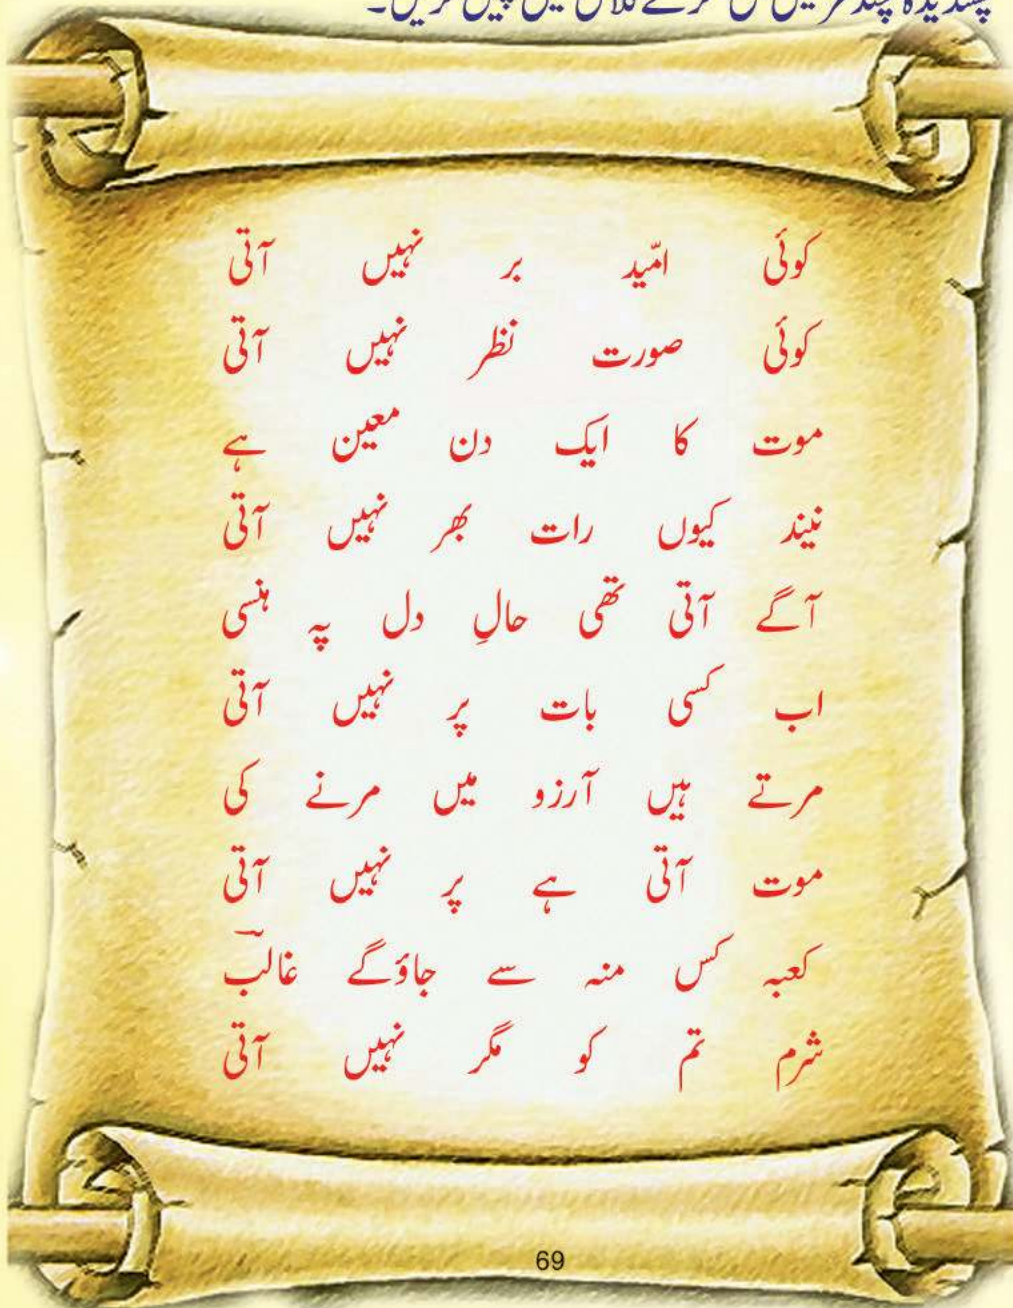 پسندیدہ چند غزلیں کلاس میں پیش کریں۔
کوئی امّید بر نہیں آتی
کوئی صورت نظر نہیں آتی
موت کا ایک دن معین ہے
نیند کیوں رات بھر نہیں آتی
آگے آتی تھی حالِ دل پہ ہنسی
اب کسی بات پر نہیں آتی
مرتے ہیں آرزو میں مرنے کی
موت آتی ہے پر نہیں آتی
کعبہ کس منہ سے جاؤگے غالبؔ
شرم تم کو مگر نہیں آتی
69